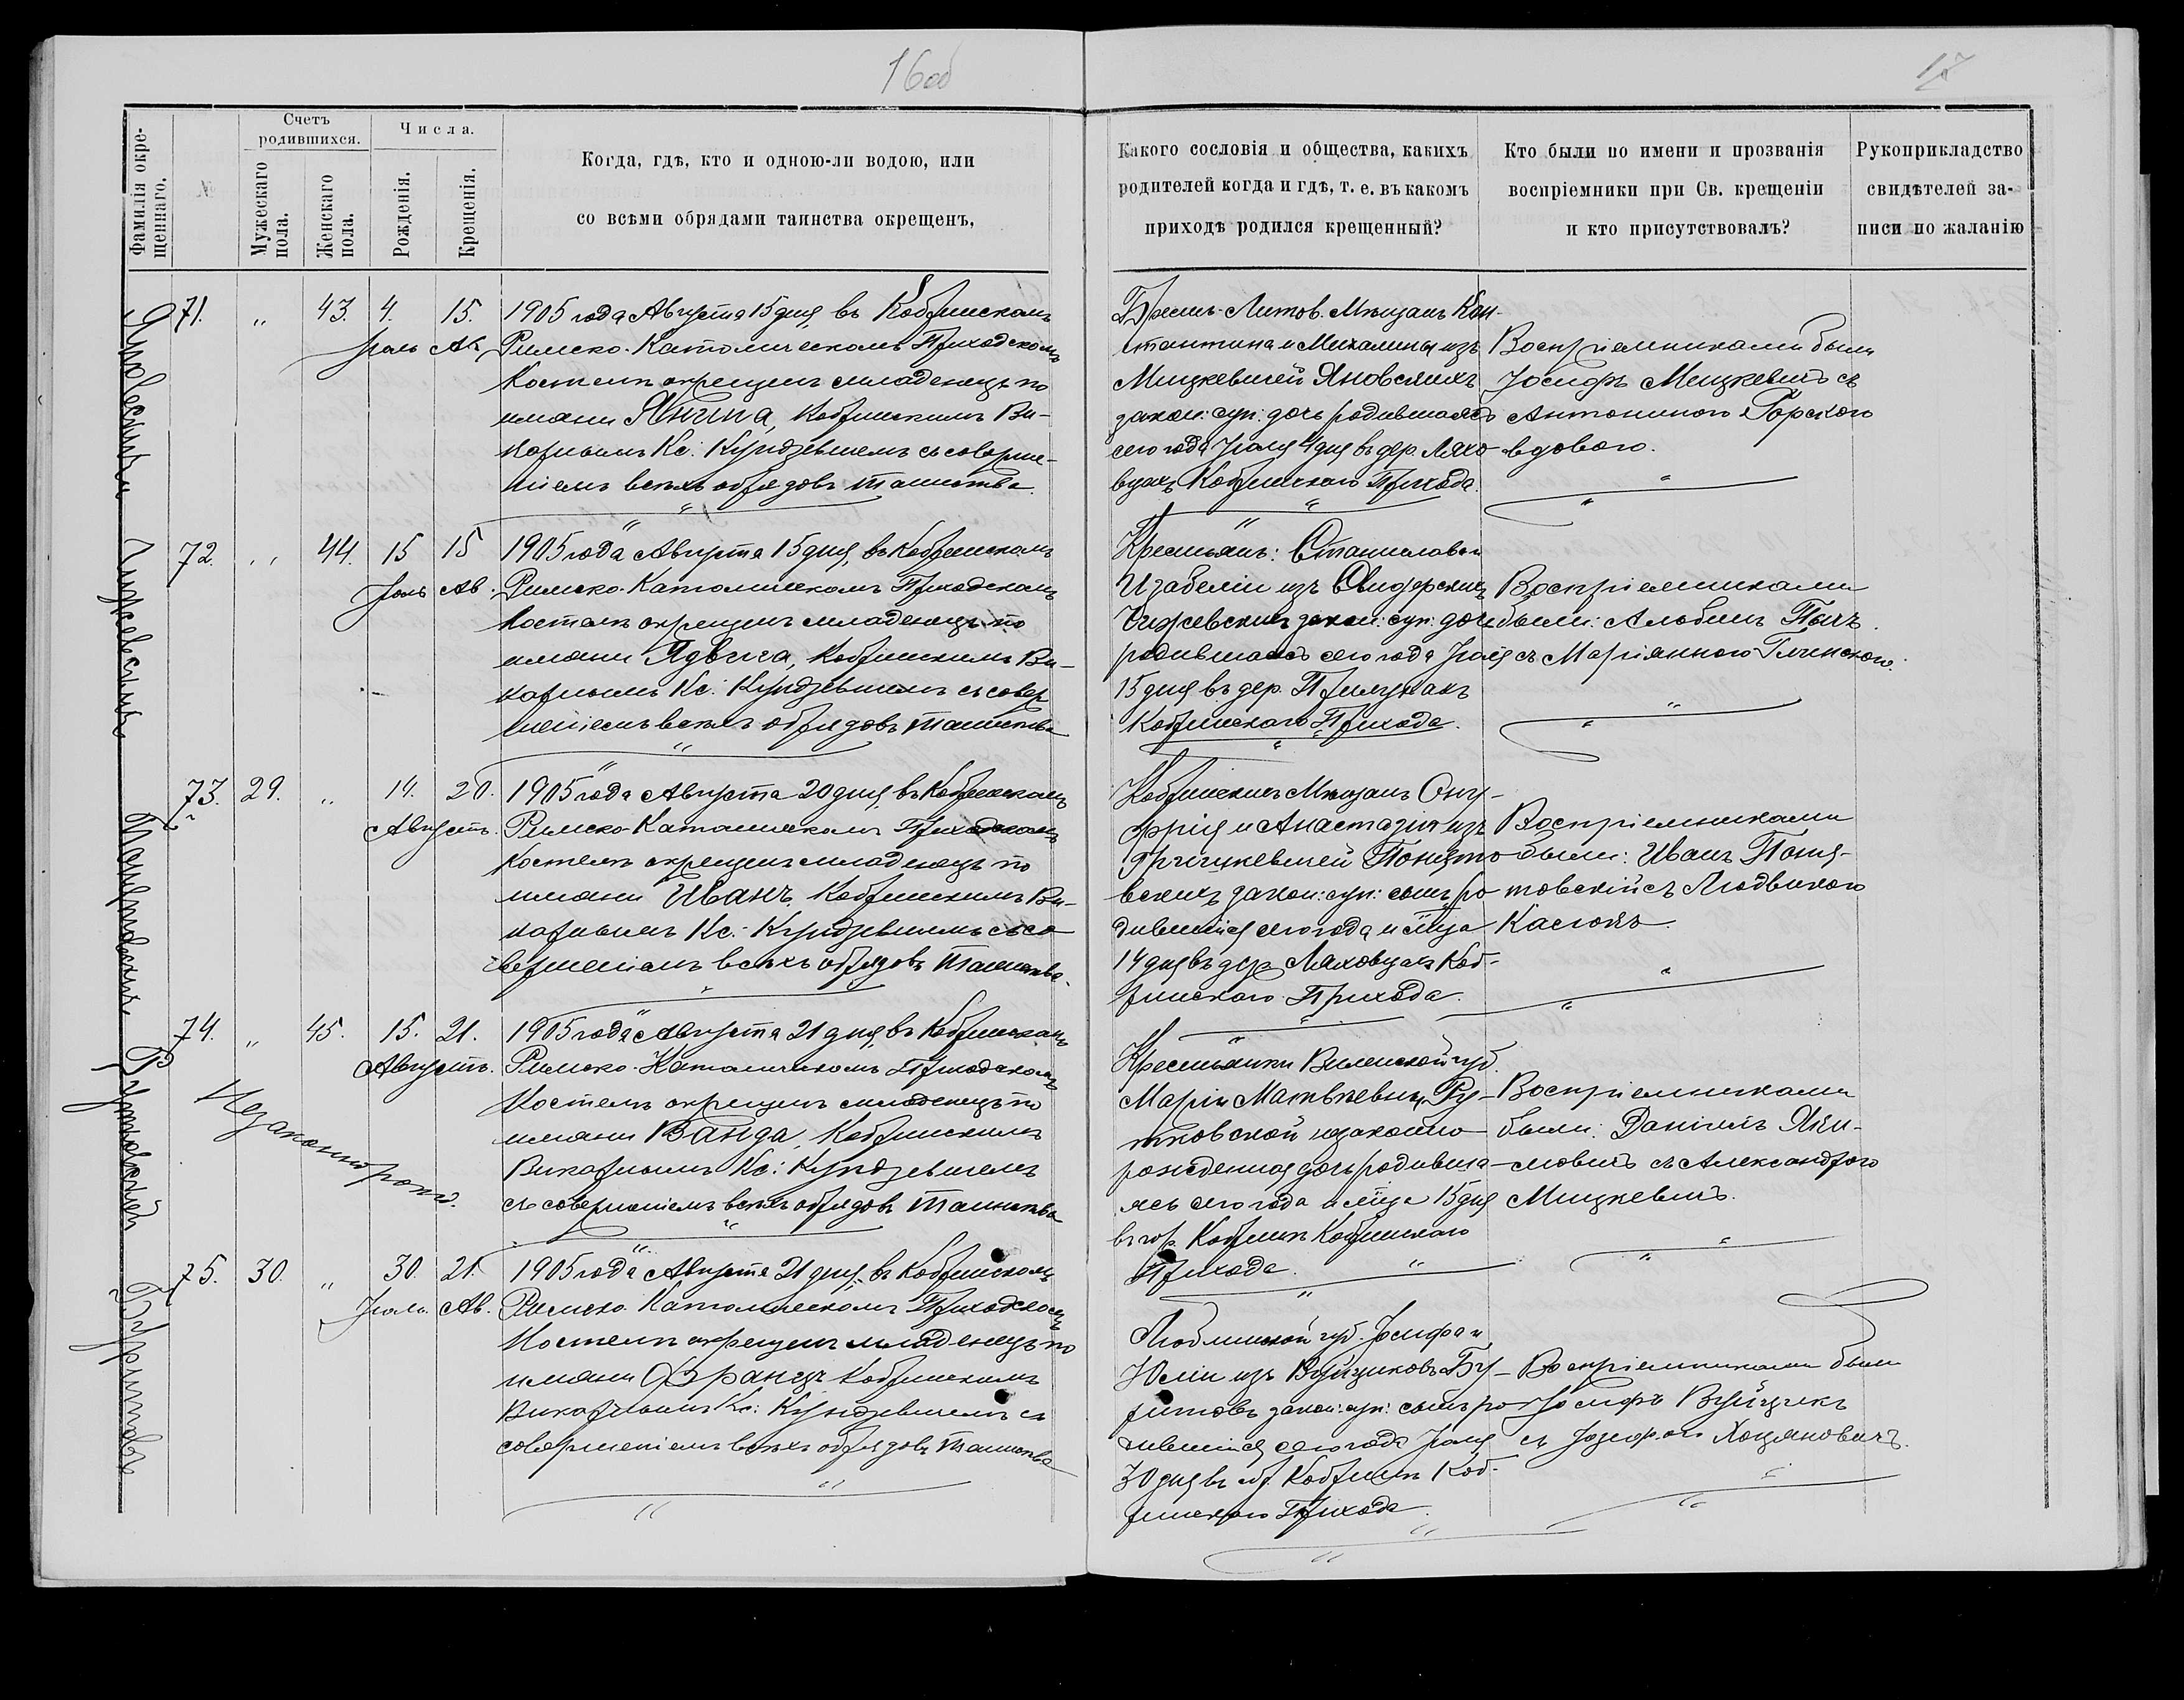 16об
17
Фамилія окре-
щеннаго.
№
Счетъ
родившихся.
Мужескаго
пола.
Женскаго
пола.
Числа.
Рожденія.
Крещенія.
Когда, гдѣ, кто и одною-ли водою, или
со всѣми обрядами таинства окрещенъ,
Какого сословія и общества, какихъ
родителей когда и гдѣ, т. е. въ какомъ
приходѣ родился крещенный?
Кто были по имени и прозванія
воспріемники при Св. крещеніи
и кто присутствовалъ?
Рукоприкладство
свидѣтелей за-
писи по жаланію
71. „ 43. 4. 15.
Іюль Ав.
1905 года Августа 15 дня, въ Кобринскомъ
Римско-Католическомъ Приходскомъ
Костелѣ окрещенъ младенецъ по
имени Янина, Кобринскимъ Ви-
карнымъ Кс: Кундзевичемъ съ соверше-
ніемъ всѣхъ обрядовъ таинства.
Брестъ-Литов. Мѣщанъ Кон-
стантина и Михалины изъ
Мицкевичей Яновскихъ
закон: суп: дочь родившаяся
сего года Іюля 4 дня въ дер. Ляхо-
вцахъ Кобринскаго Прихода.
Воспріемниками были
Іосифъ Мицкевичъ съ
Антониною Горскою
вдовою.
72. „ 44. 15 15
Іюль Ав.
Чижевскихъ
1905 года Августа 15 дня, въ Кобринскомъ
Римско-Католическомъ Приходскомъ
Костелѣ окрещенъ младенецъ по
имени Ядвига, Кобринскимъ Ви-
карнымъ Кс: Кундзевичемъ съ совер
шеніемъ всѣхъ обрядовъ таинства
Крестьянъ: Станислава и
Изабеліи изъ Свидерскихъ
Чижевскихъ закон: суп: дочь
родившаяся сего года Іюля
15 дня въ дер. Прилукахъ
Кобринскаго Прихода.
Воспріемниками
были: Альбинъ Пыхъ
съ Маріянною Глинскою.
73. 29. „ 14. 20.
Августъ.
1905 года Августа 20 дня, въ Кобринскомъ
Римско-Католическомъ Приходскомъ
Костелѣ окрещенъ младенецъ по
имени Иванъ, Кобринскимъ Ви-
карнымъ Кс: Кундзевичемъ съ со
вершеніемъ всѣхъ обрядовъ таинства.
Кобринскихъ Мѣщанъ Ону-
фрія и Анастазіи изъ
Гричкевичей Понято-
вскихъ закон: суп: сынъ, ро
дившійся сего года и м-ца
14 дня въ дер. Ляховцахъ Коб-
ринскаго Прихода.
Воспріемниками
были: Иванъ Поня-
товскій съ Людвикою
Касюкъ.
74. „ 45. 15. 21.
Августъ.
Незаконнорожд.
1905 года Августа 21 дня, въ Кобринскомъ
Римско-Католическомъ Приходскомъ
Костелѣ окрещенъ младенецъ по
имени Ванда, Кобринскимъ
Викарнымъ Кс: Кундзевичемъ
съ совершеніемъ всѣхъ обрядовъ таинства
Крестьянки Виленской губ.
Маріи Матвѣевны Ру-
тковской незаконно-
рожденная дочь родивша-
яся сего года и м-ца 15 дня
въ гор. Кобринѣ Кобринскаго
Прихода.
Воспріемниками
были: Даніилъ
съ Александрою
Мицкевичъ.
75. 30. „ 30. 21.
Іюль. Ав.
1905 года Августа 21 дня, въ Кобринскомъ
Римско-Католическомъ Приходскомъ
Костелѣ окрещенъ младенецъ по
имени Францъ Кобринскимъ
Викарнымъ Кс: Кундзевичемъ съ
совершеніемъ всѣхъ обрядовъ таинства
Люблинской губ. Іосифа и
Юліи изъ Вуйциковъ Бу-
ритовъ закон: суп: сынъ ро
дившійся сего года Іюля
30 дня въ гор. Кобринѣ Коб-
ринскаго Прихода.
Воспріемниками были
Іосифъ Вуйцикъ
съ Іозефою